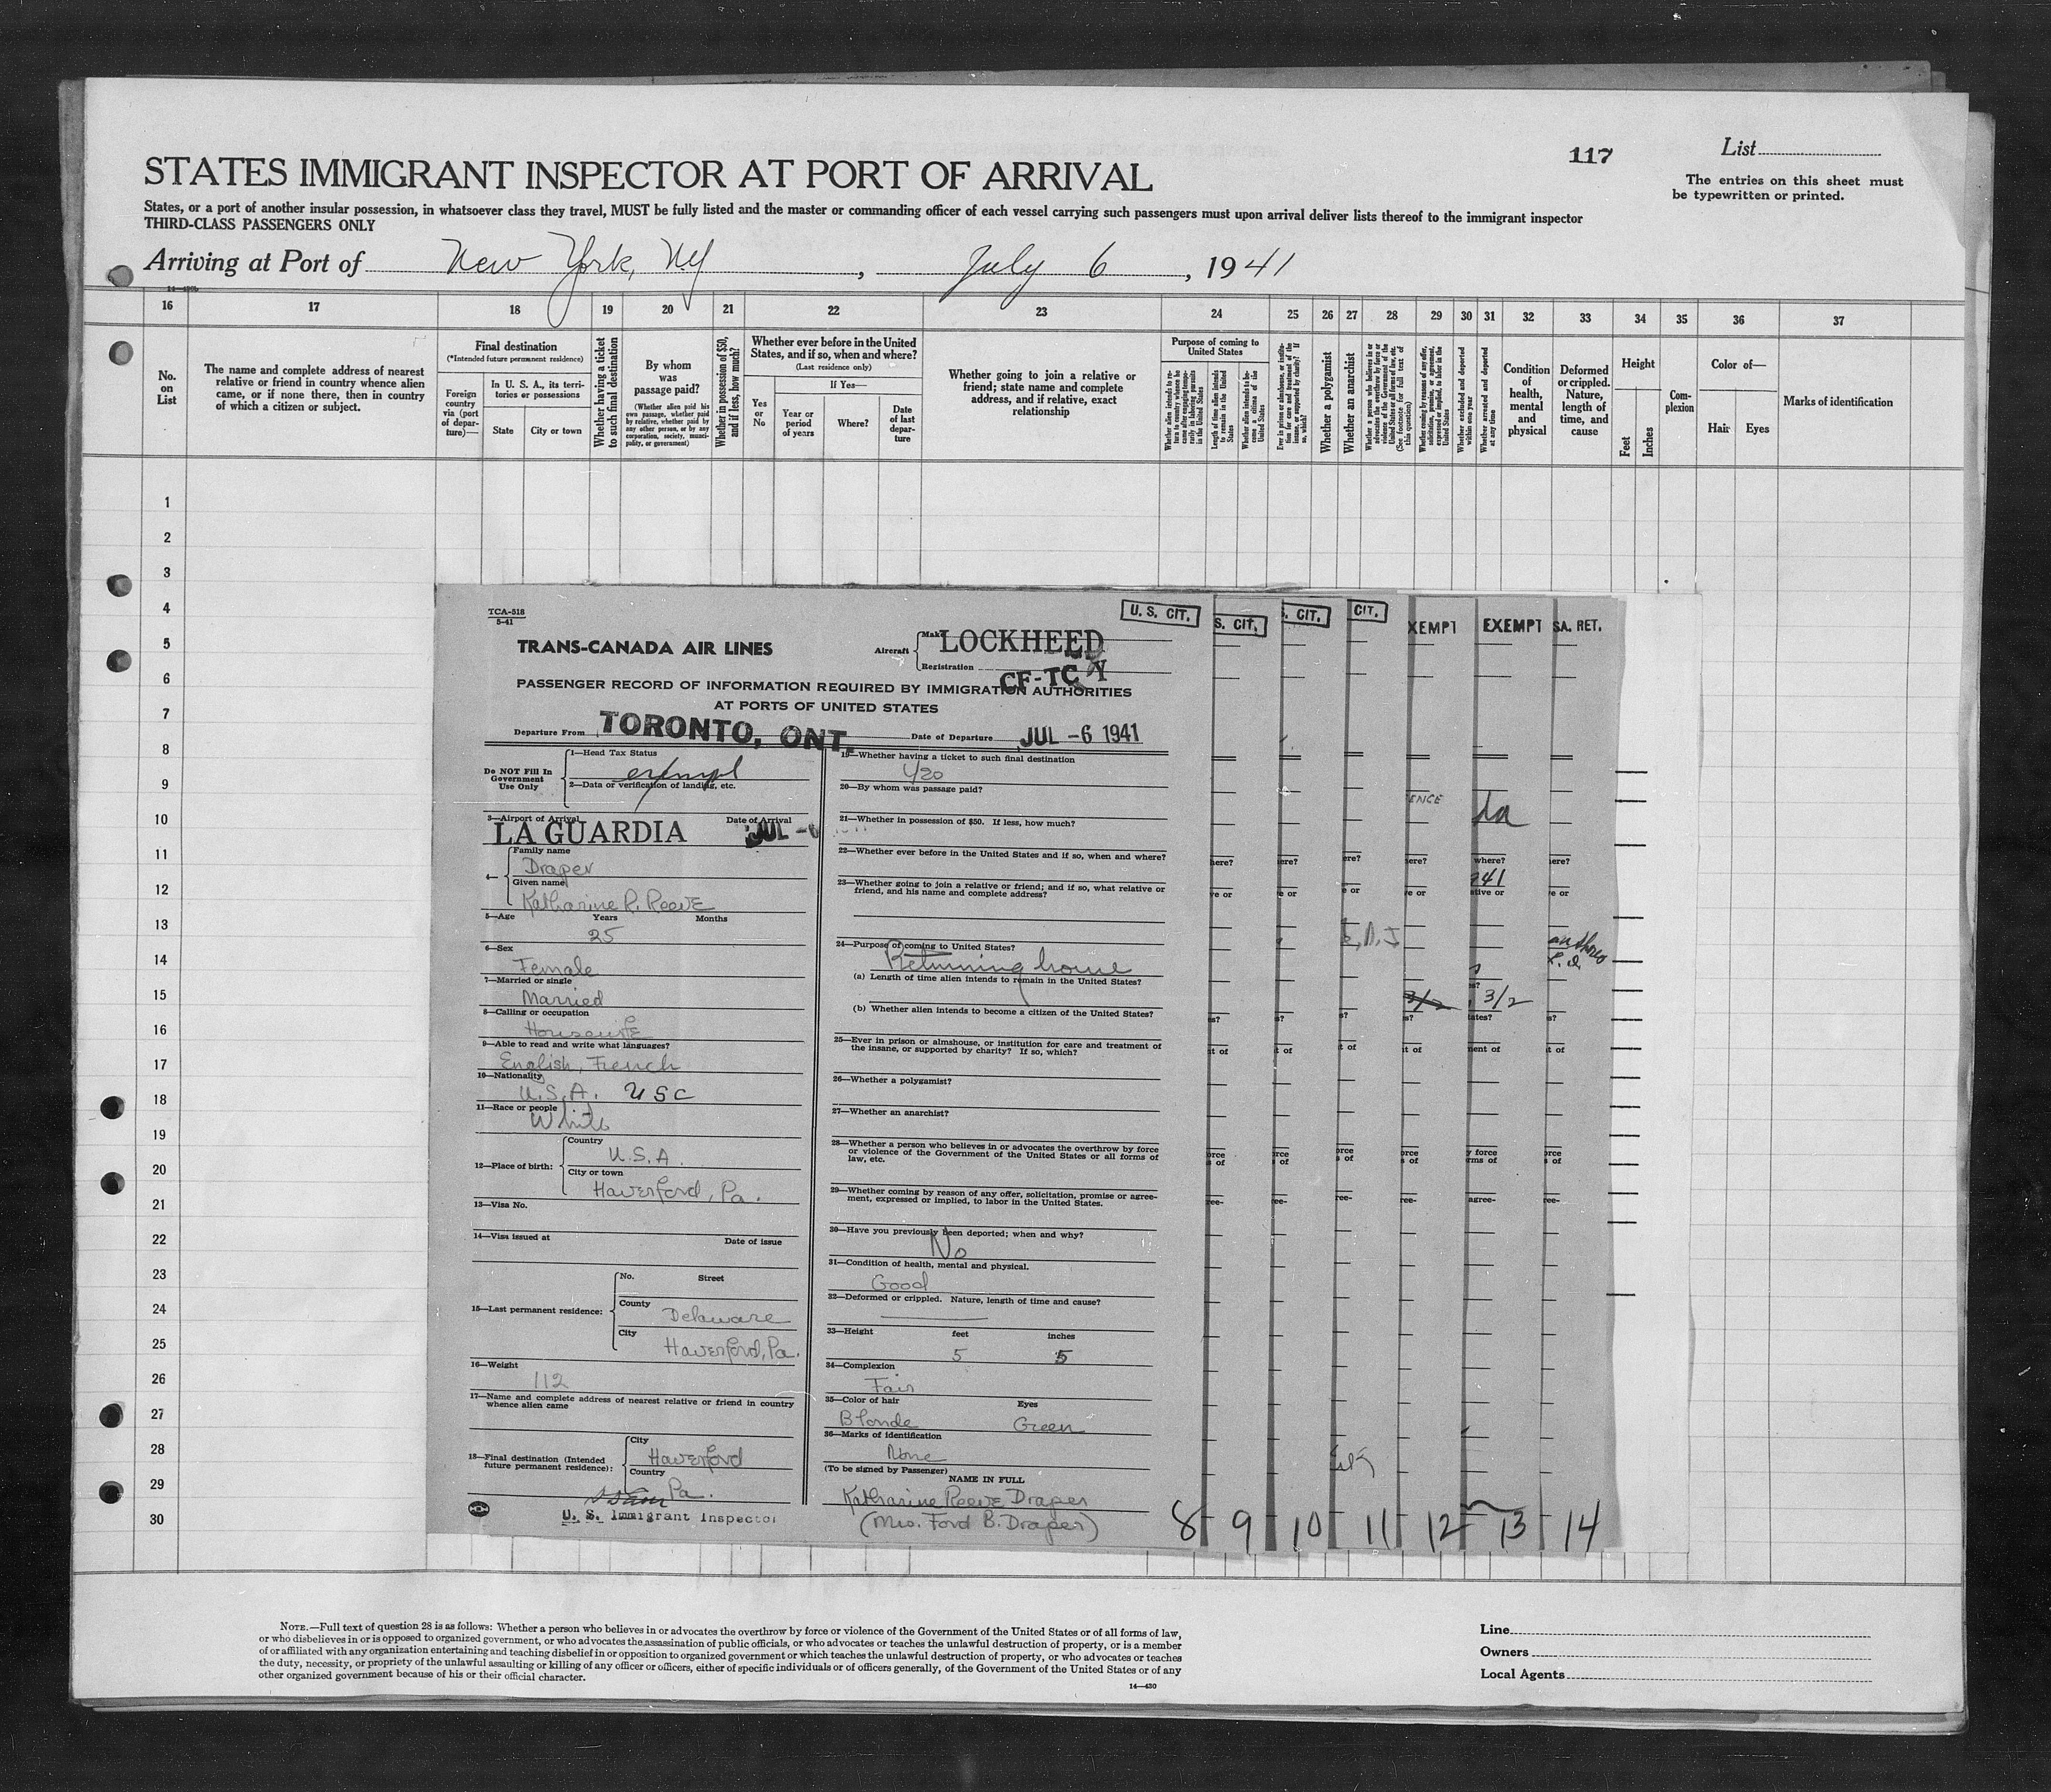 117
List
STATES IMMIGRANT INSPECTOR AT PORT OF ARRIVAL
The entries on this sheet must
be typewritten or printed.
States, or a port of another insular possession, in whatsoever class they travel, MUST be fully listed and the master or commanding officer of each vessel carrying such passengers must upon arrival deliver lists thereof to the immigrant inspector
THIRD-CLASS PASSENGERS ONLY
Arriving at Port of New York, NY, July 6, 1941
16 17 18 19 20 21 22 23 24 25 26 27 28 29 30 31 32 33 34 35 36 37
No. on List
The name and complete address of nearest
relative or friend in country whence alien
came, or if none there, then in country
of which a citizen or subject.
Final destination
(*Intended future permanent residence)
Foreign country via (port of departure)—
In U. S. A., its territories or possessions
State
City or town
Whether having a ticket to such final destination
By whom was passage paid?
(Whether alien paid his own passage, whether paid by relative, whether paid by any other person, or by any corporation, society, municipality, or government)
Whether in possession of $50, and if less, how much?
Whether ever before in the United
States, and if so, when and where?
(Last residence only)
Yes or No
If Yes—
Year or period of years
Where?
Date of last departure
Whether going to join a relative or
friend; state name and complete
address, and if relative, exact
relationship
Purpose of coming to
United States
Length of time alien intends to remain in the United States
Whether alien intends to become a citizen of the United States
Whether a polygamist
Whether an anarchist
Whether excluded and deported within one year
Whether arrested and deported at any time
Condition of health, mental and physical
Deformed or crippled. Nature, length of time, and cause
Height
Feet
Inches
Complexion
Color of—
Hair
Eyes
Marks of identification
1
2
3
4
5
6
7
8
9
10
11
12
13
14
15
16
17
18
19
20
21
22
23
24
25
26
27
28
29
30
TCA-518
5-41
TRANS-CANADA AIR LINES
Aircraft
Make LOCKHEED
Registration CF-TC
PASSENGER RECORD OF INFORMATION REQUIRED BY IMMIGRATION AUTHORITIES
AT PORTS OF UNITED STATES
Departure From TORONTO, ONT.
Date of Departure JUL -6 1941
Do NOT Fill In
Government
Use Only
1—Head Tax Status
exempt
2—Data or verification of landing, etc.
3—Airport of Arrival
Date of Arrival
LA GUARDIA
JUL -6
4—
Family name
Draper
Given name
Katharine R. Reeve
5—Age Years Months
25
6—Sex
Female
7—Married or single
Married
8—Calling or occupation
Housewife
9—Able to read and write what languages?
English, French
10—Nationality
U.S.A. USC
11—Race or people
White
12—Place of birth:
Country
U.S.A.
City or town
Haverford, Pa.
13—Visa No.
14—Visa issued at Date of issue
15—Last permanent residence:
No. Street
County
Delaware
City
Haverford, Pa.
16—Weight
112
17—Name and complete address of nearest relative or friend in country
whence alien came
18—Final destination (Intended
future permanent residence):
City
Haverford
Country
Pa.
U. S. Immigrant Inspector
19—Whether having a ticket to such final destination
Yes
20—By whom was passage paid?
21—Whether in possession of $50. If less, how much?
22—Whether ever before in the United States and if so, when and where?
23—Whether going to join a relative or friend; and if so, what relative or
friend, and his name and complete address?
24—Purpose of coming to United States?
Returning home
(a) Length of time alien intends to remain in the United States?
(b) Whether alien intends to become a citizen of the United States?
25—Ever in prison or almshouse, or institution for care and treatment of
the insane, or supported by charity? If so, which?
26—Whether a polygamist?
27—Whether an anarchist?
28—Whether a person who believes in or advocates the overthrow by force
or violence of the Government of the United States or all forms of
law, etc.
29—Whether coming by reason of any offer, solicitation, promise or agree-
ment, expressed or implied, to labor in the United States.
30—Have you previously been deported; when and why?
No
31—Condition of health, mental and physical.
Good
32—Deformed or crippled. Nature, length of time and cause?
33—Height feet inches
5 5
34—Complexion
Fair
35—Color of hair Eyes
Blonde Green
36—Marks of identification
None
(To be signed by Passenger)
NAME IN FULL
Katharine Reeve Draper
(Mrs. Ford B. Draper)
U. S. CIT.
S. CIT.
. CIT.
CIT.
XEMPT
EXEMPT
SA. RET.
ENCE
941
3/2
3/2
8 9 10 11 12 13 14
NOTE.—Full text of question 28 is as follows: Whether a person who believes in or advocates the overthrow by force or violence of the Government of the United States or of all forms of law,
or who disbelieves in or is opposed to organized government, or who advocates the assassination of public officials, or who advocates or teaches the unlawful destruction of property, or is a member
of or affiliated with any organization entertaining and teaching disbelief in or opposition to organized government or which teaches the unlawful destruction of property, or who advocates or teaches
the duty, necessity, or propriety of the unlawful assaulting or killing of any officer or officers, either of specific individuals or of officers generally, of the Government of the United States or of any
other organized government because of his or their official character.
14—430
Line
Owners
Local Agents